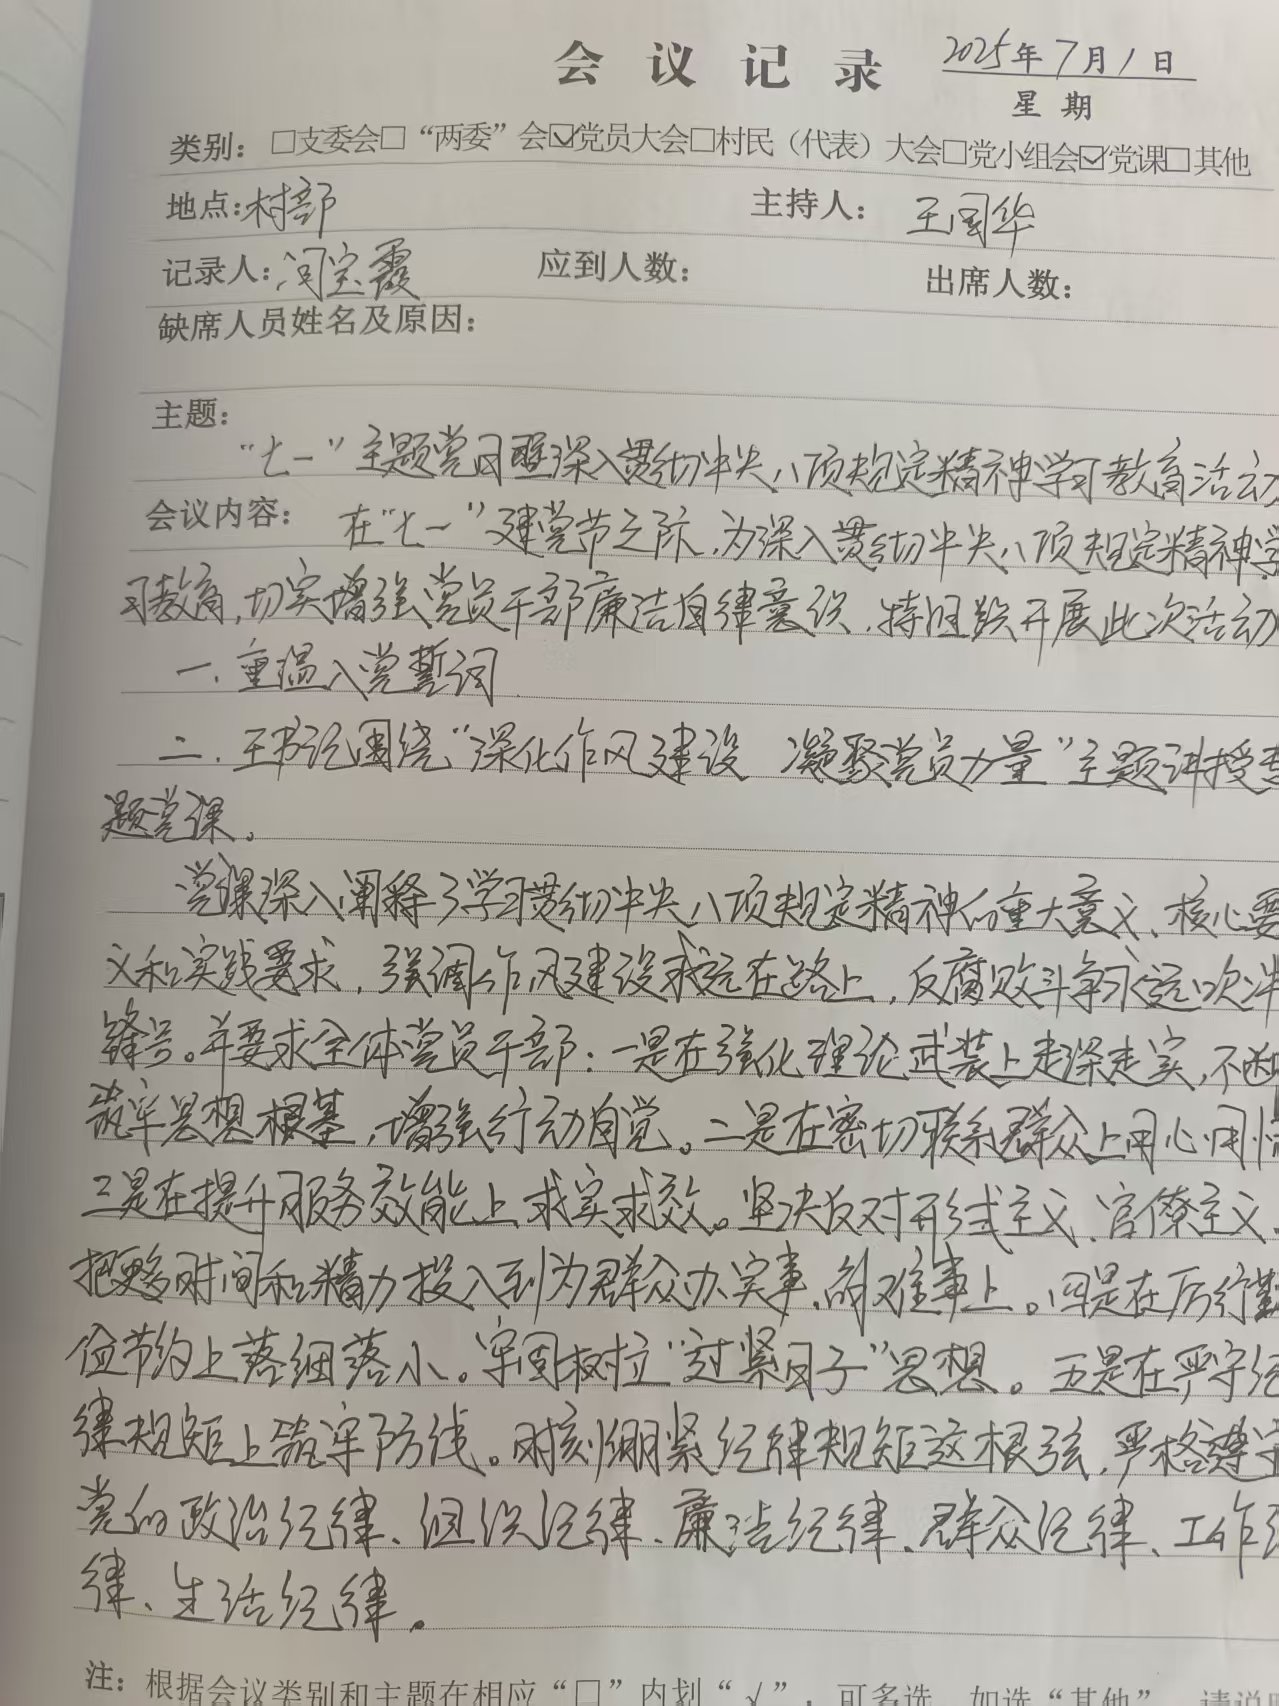 会议记录 2025年7月1日
星期
类别：□支委会□“两委”会☑党员大会□村民（代表）大会□党小组会☑党课□其他
地点：村部 主持人： 王国华
记录人：闫宝霞 应到人数： 出席人数：
缺席人员姓名及原因：
主题：
“七一”主题党日暨深入贯彻中央八项规定精神学习教育活动
会议内容： 在“七一”建党节之际，为深入贯彻中央八项规定精神学
习教育，切实增强党员干部廉洁自律意识，特组织开展此次活动
一、重温入党誓词
二、王书记围绕“深化作风建设 凝聚党员力量”主题讲授专
题党课。
党课深入阐释了学习贯彻中央八项规定精神的重大意义、核心要
义和实践要求，强调作风建设永远在路上，反腐败斗争永远吹冲
锋号。并要求全体党员干部：一是在强化理论武装上走深走实，不断
筑牢思想根基，增强行动自觉。二是在密切联系群众上用心用情
三是在提升服务效能上求实求效。坚决反对形式主义、官僚主义、
把更多时间和精力投入到为群众办实事、解难事上。四是在厉行勤
俭节约上落细落小。牢固树立“过紧日子”思想。五是在严守纪
律规矩上筑牢防线。时刻绷紧纪律规矩这根弦，严格遵守
党的政治纪律、组织纪律、廉洁纪律、群众纪律、工作纪
律、生活纪律。
注：根据会议类别和主题在相应“口”内划“√”，可多选，如选“其他”，请说明